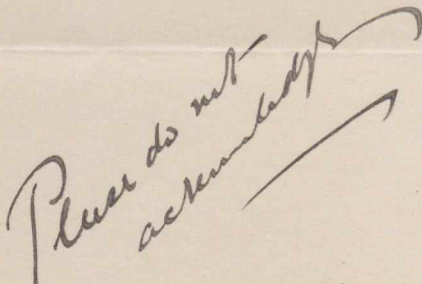 Please do not
acknowledge